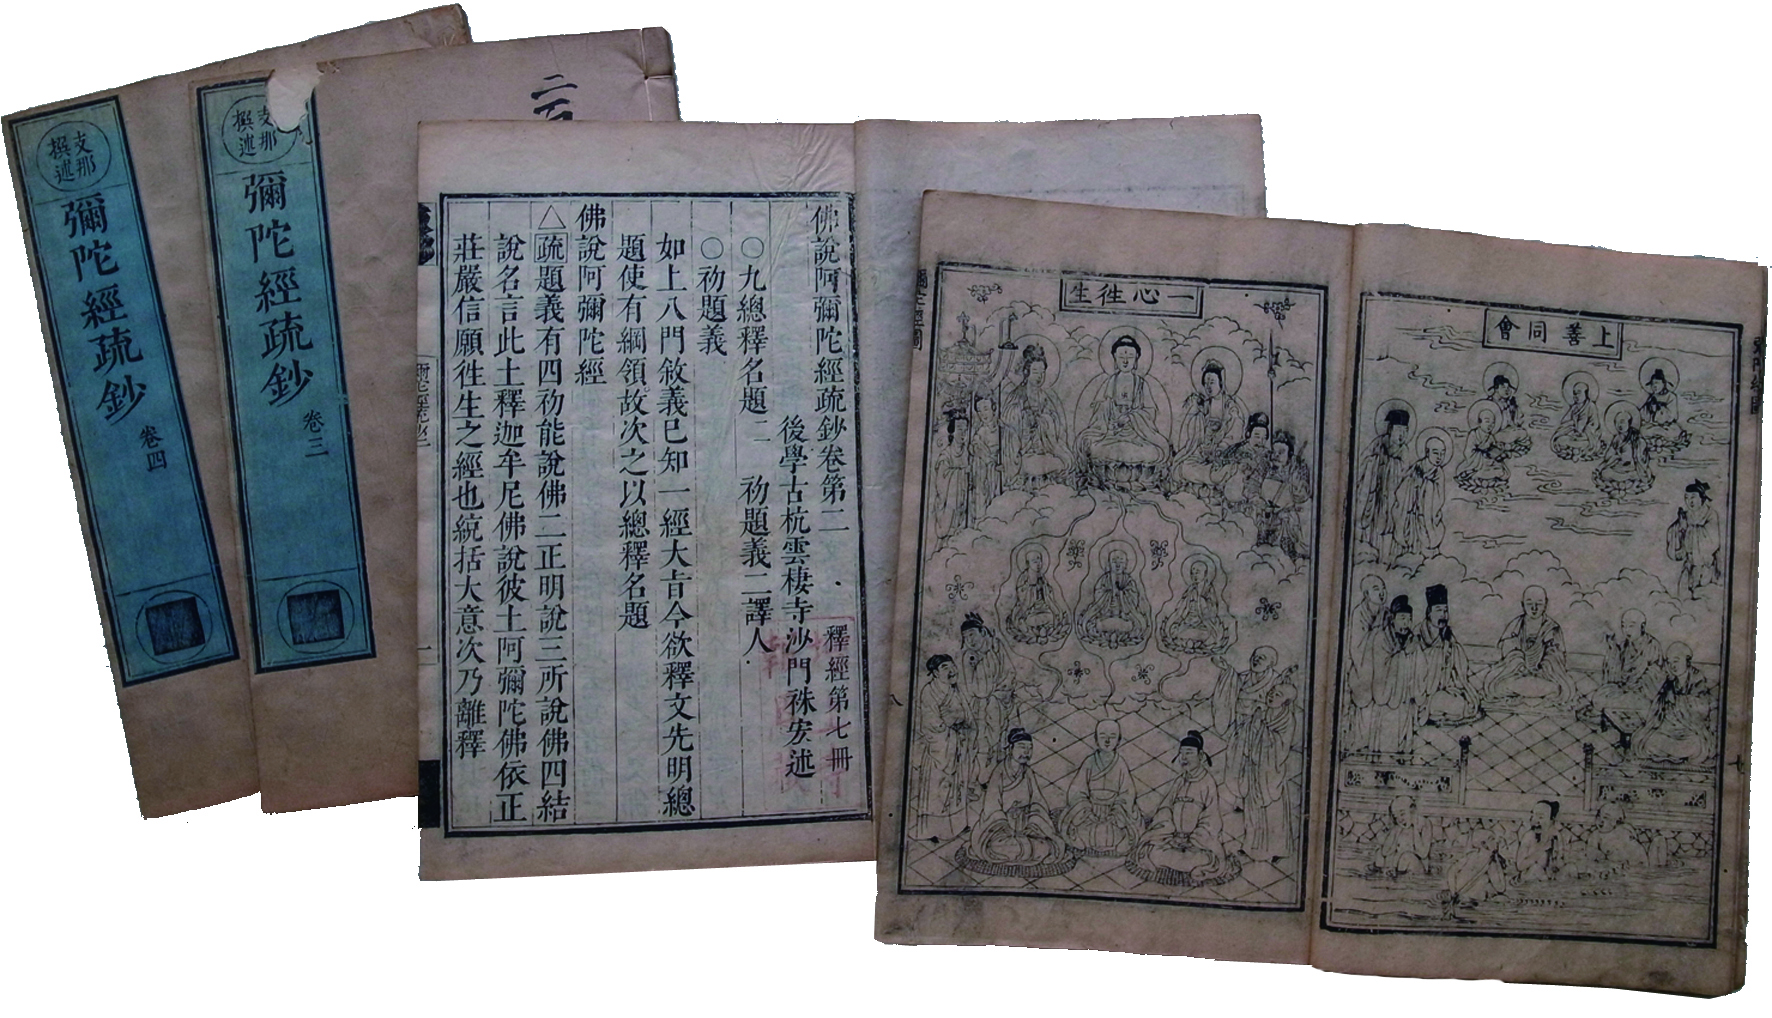 支那
撰述
彌陀經疏鈔
卷四
支那
撰述
彌陀經疏鈔
卷三
二百
佛說阿彌陀經疏鈔卷第二
釋經第七冊
後學古杭雲棲寺沙門袾宏述
〇九總釋名題二 初題義二譯人
〇初題義
如上八門敘義已知一經大旨今欲釋文先明總
題使有綱領故次之以總釋名題
佛說阿彌陀經
△疏題義有四初能說佛二正明說三所說佛四結
說名言此土釋迦牟尼佛說彼土阿彌陀佛依正
莊嚴信願徃生之經也統括大意次乃離釋
一
一心徃生
八
上善同會
七